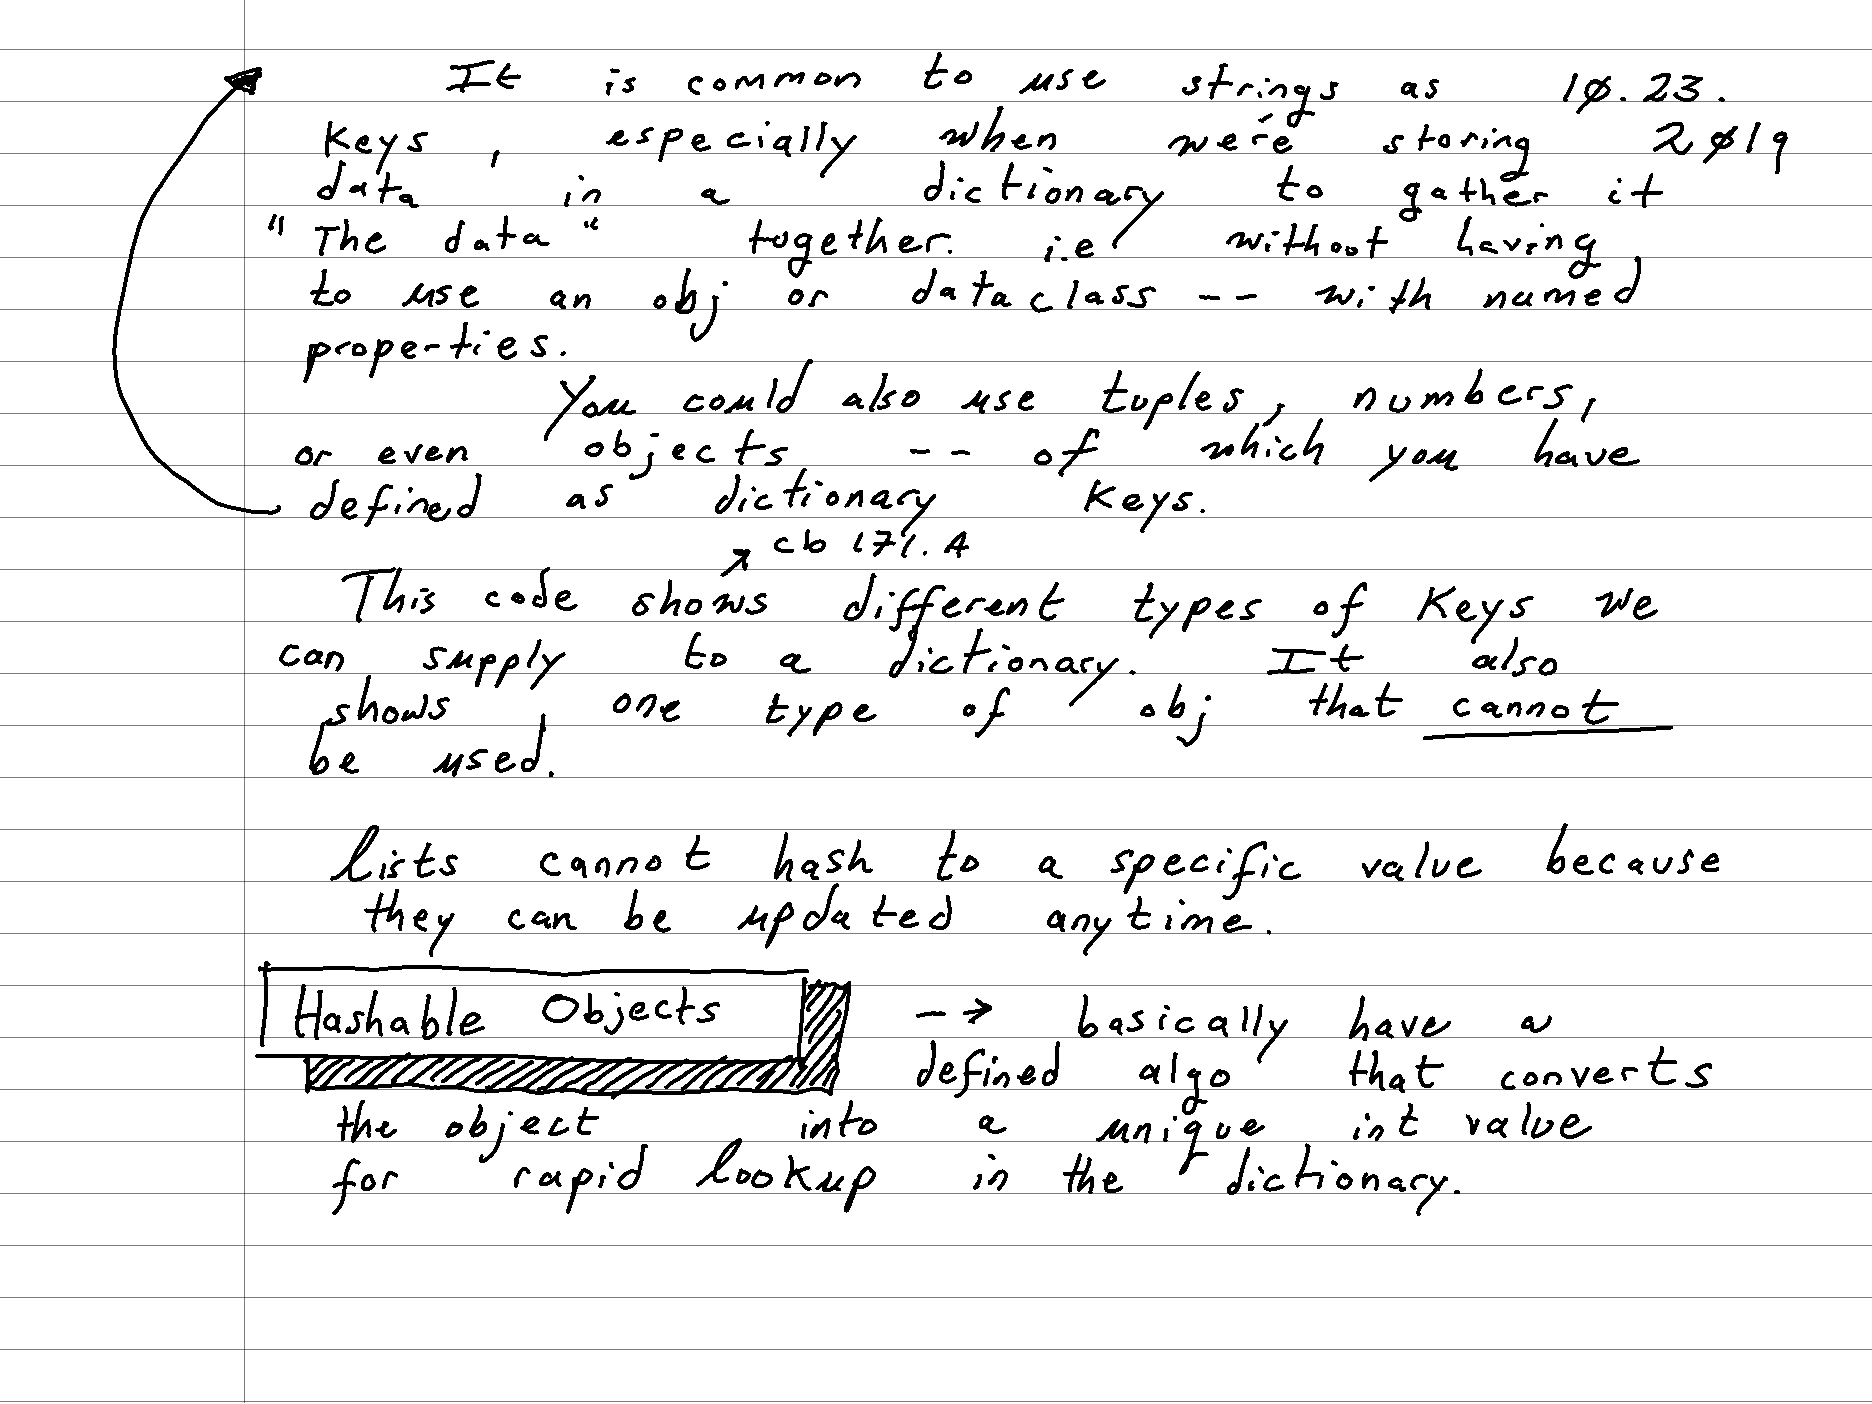 It is common to use strings as 10.23.
Keys, especially when we're storing 2019
data in a dictionary to gather it
"The data" together. i.e without having
to use an obj or dataclass -- with named
properties.
You could also use tuples, numbers,
or even objects -- of which you have
defined as dictionary Keys.
cb 171.A
This code shows different types of Keys we
can supply to a dictionary. It also
shows, one type of obj that cannot
be used.
lists cannot hash to a specific value because
they can be updated anytime.
Hashable Objects --> basically have a
defined algo that converts
the object into a unique int value
for rapid lookup in the dictionary.